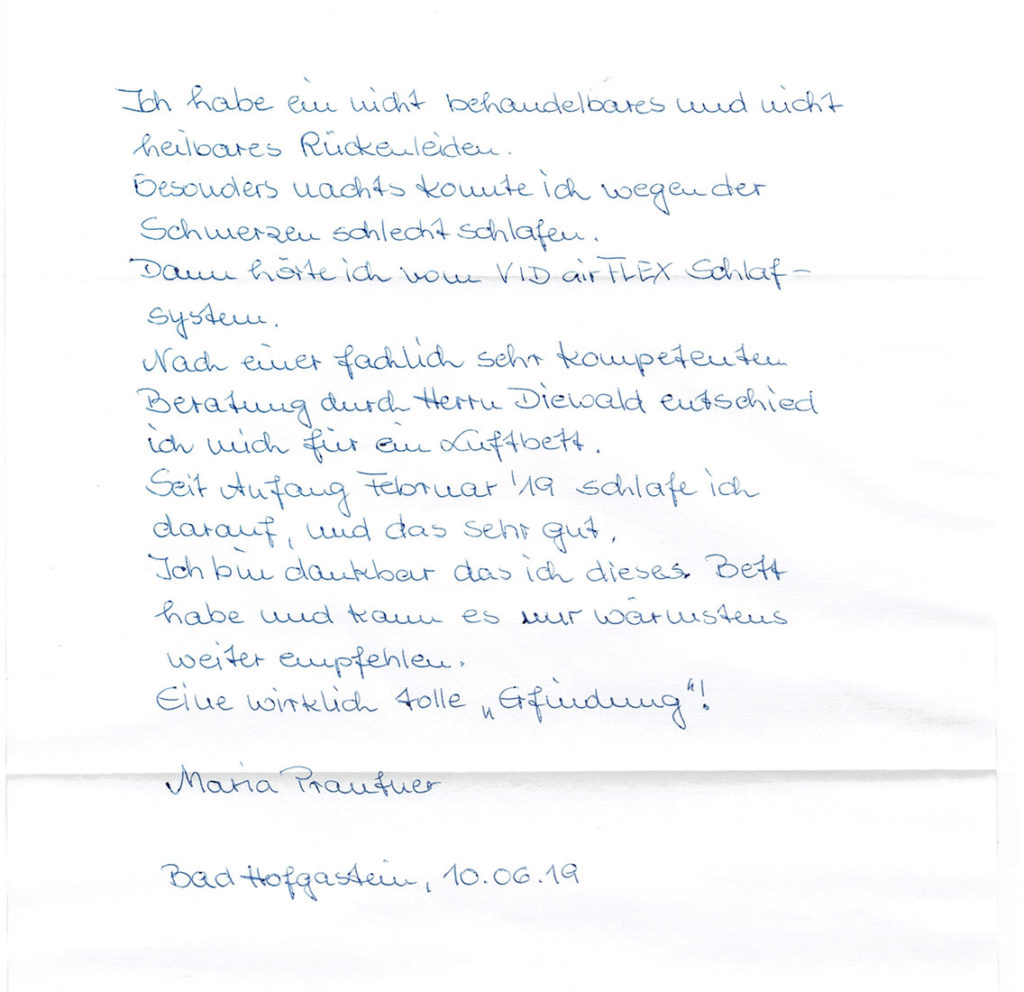 Ich habe ein nicht behandelbares und nicht
heilbares Rückenleiden.
Besonders nachts konnte ich wegen der
Schmerzen schlecht schlafen.
Dann hörte ich vom VID airFLEX Schlaf-
system.
Nach einer fachlich sehr kompetenten
Beratung durch Herrn Diewald entschied
ich mich für ein Luftbett.
Seit Anfang Februar '19 schlafe ich
darauf, und das sehr gut.
Ich bin dankbar das ich dieses Bett
habe und kann es nur wärmstens
weiter empfehlen.
Eine wirklich tolle „Erfindung"!
Maria Prantner
Bad Hofgastein, 10.06.19